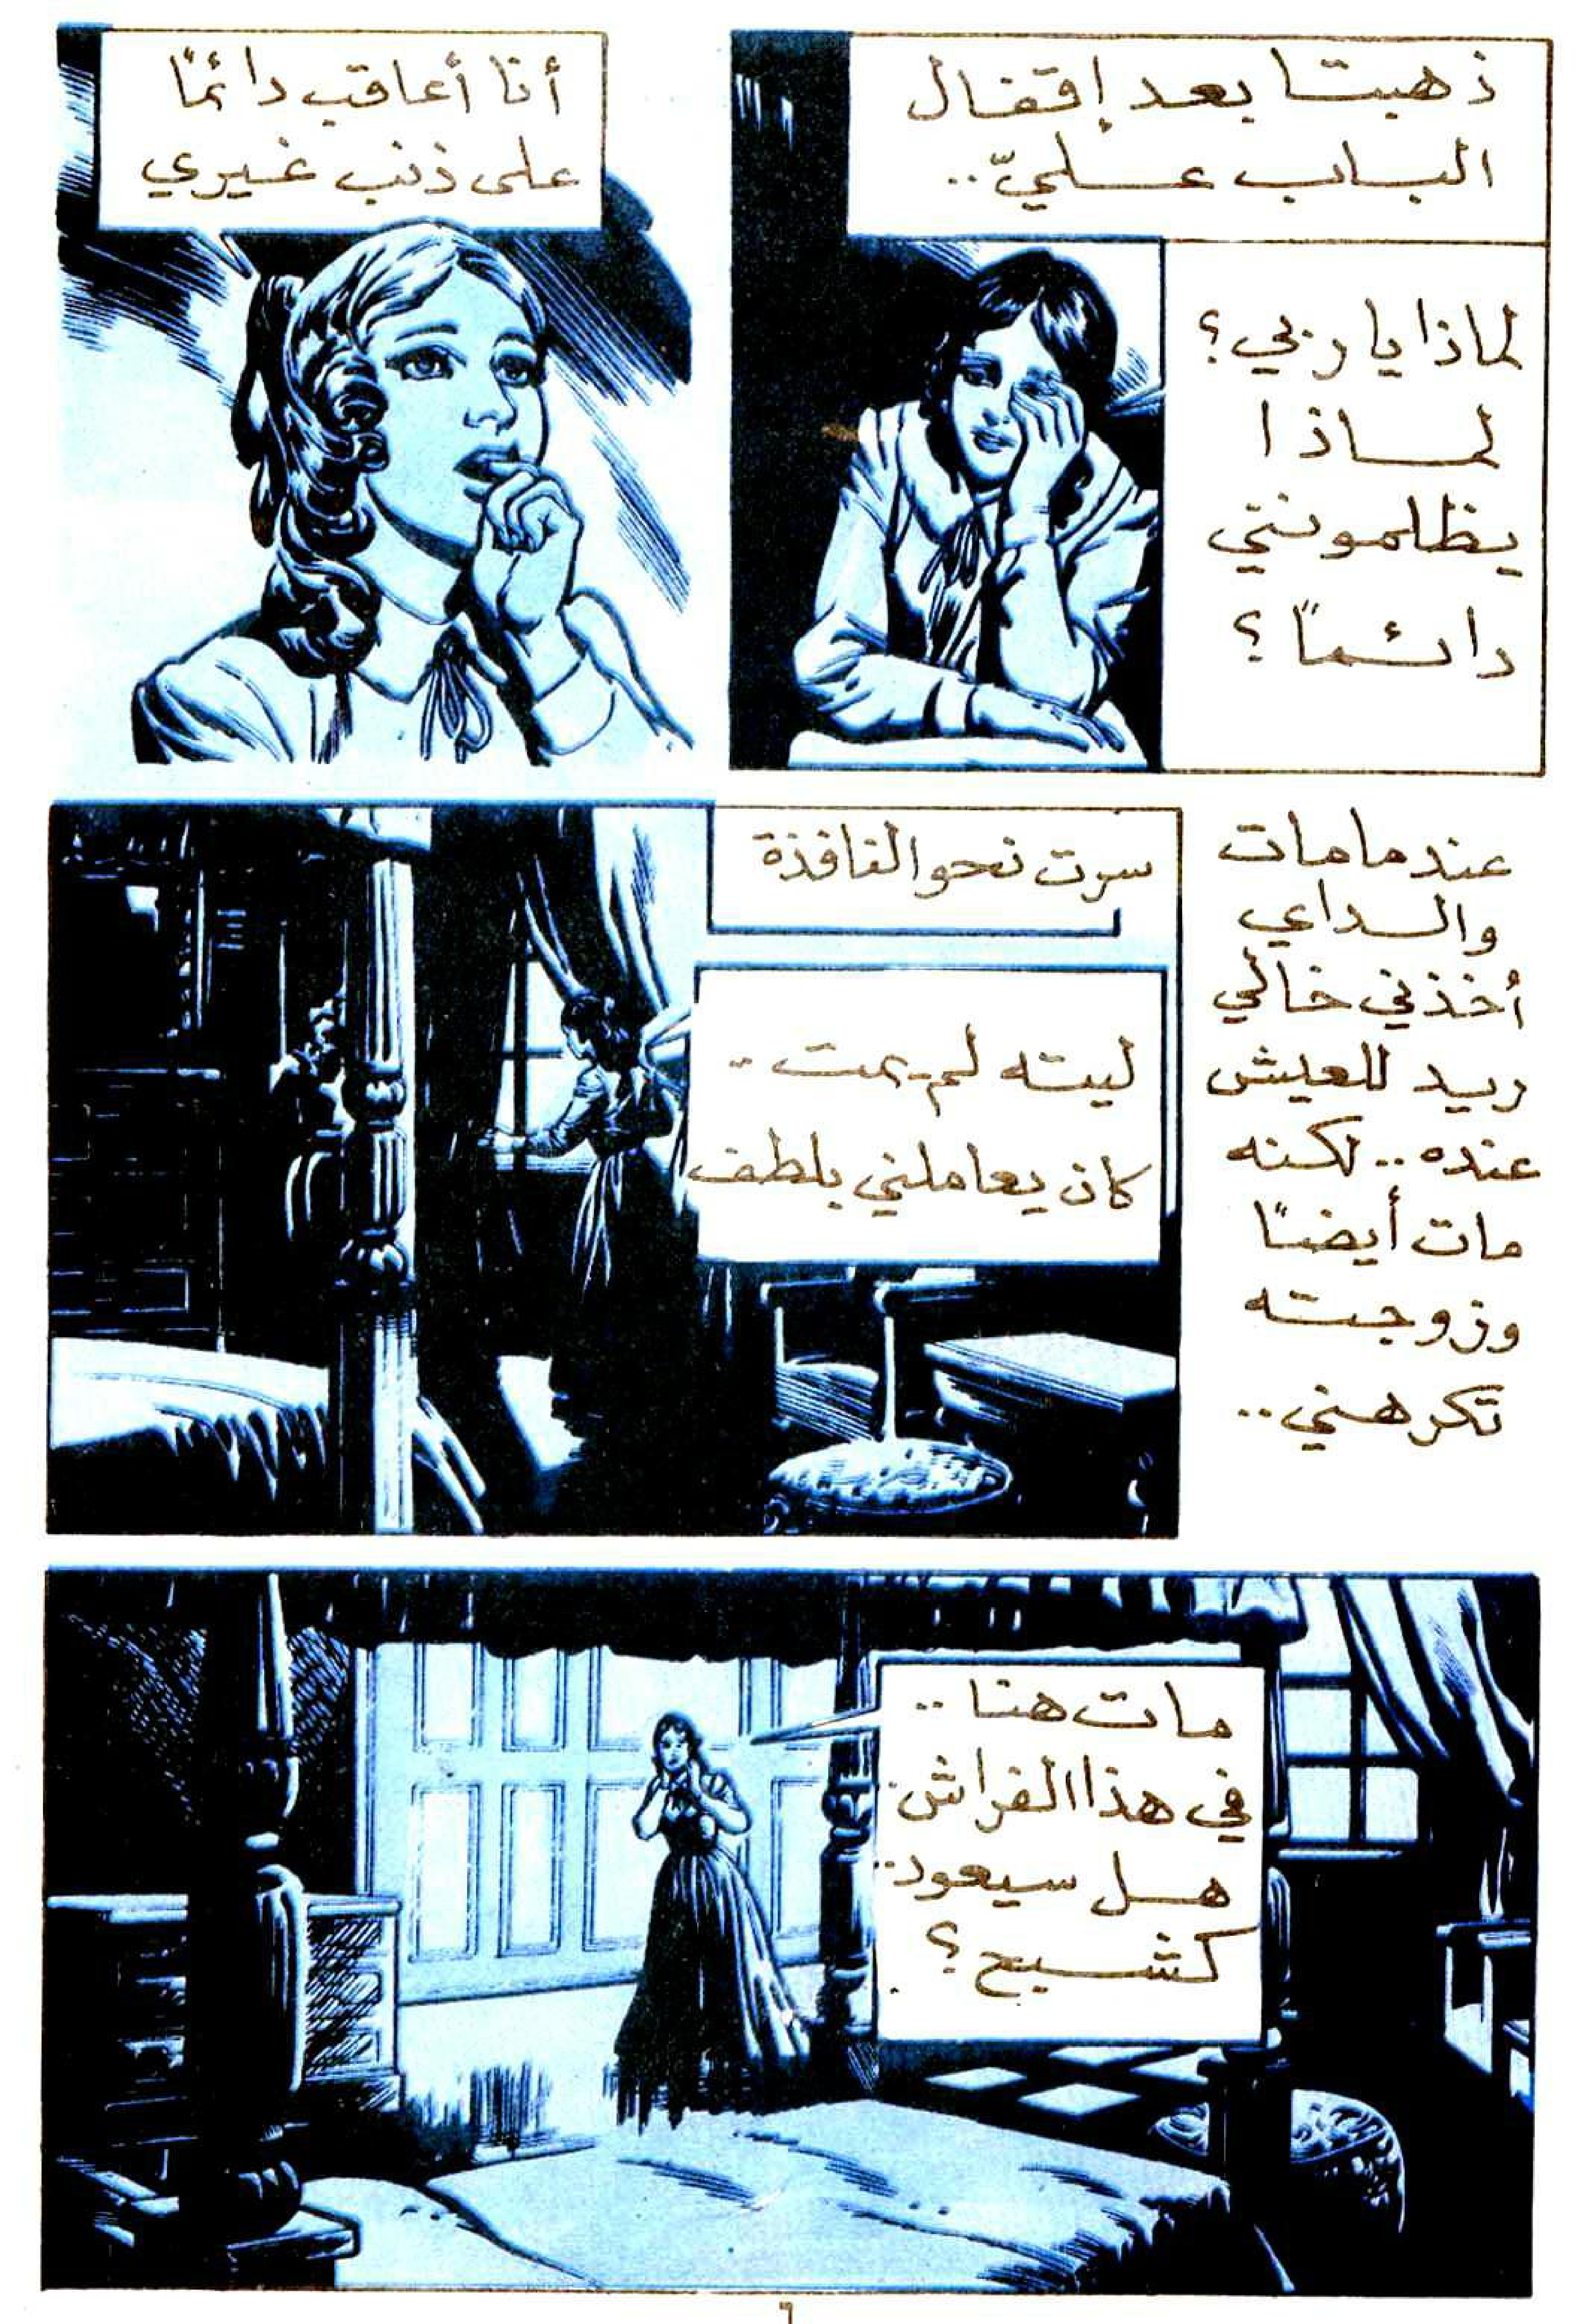 ذهبتا بعد إقفال
الباب عليّ..
لماذا يا ربي؟
لماذا
يظلمونني
دائماً؟
أنا أعاقب دائماً
على ذنب غيري
عندما مات
والداعي
أخذني خالي
ريد للعيش
عنده.. لكنه
مات أيضاً
وزوجته
تكرهني..
سرت نحو النافذة
ليته لم يمت..
كان يعاملني بلطف
مات هنا..
في هذا الفراش.
هل سيعود..
كشبح؟
٦